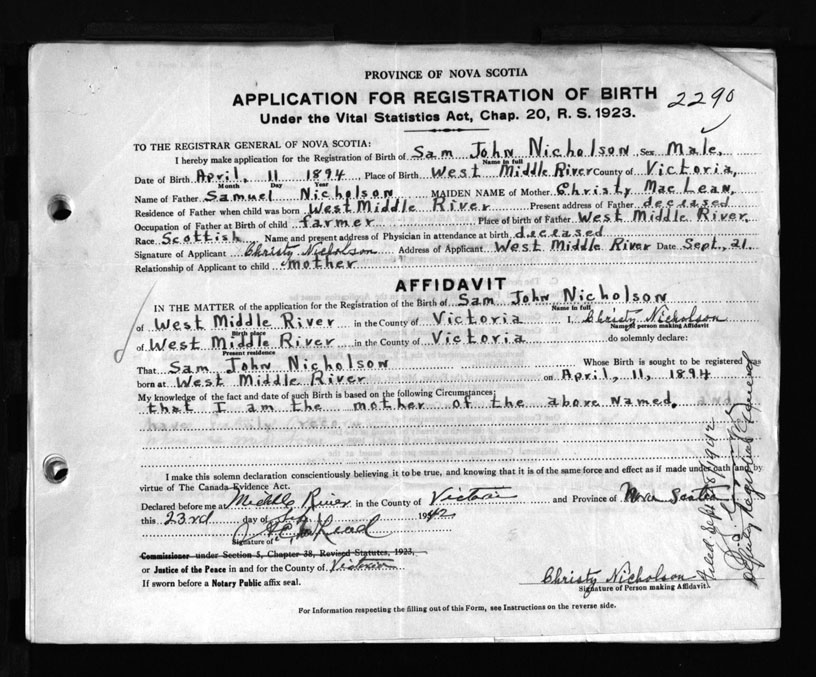 PROVINCE OF NOVA SCOTIA
APPLICATION FOR REGISTRATION OF BIRTH 2290
Under the Vital Statistics Act, Chap. 20, R. S. 1923.
TO THE REGISTRAR GENERAL OF NOVA SCOTIA:
I hereby make application for the Registration of Birth of Sam John Nicholson Sex Male,
Name in full
Date of Birth April, 11 1894 Place of Birth West Middle River County of Victoria,
Month Day Year
Name of Father Samuel Nicholson MAIDEN NAME of Mother Christy Mac Lean,
Residence of Father when child was born West Middle River Present address of Father deceased
Occupation of Father at Birth of child farmer Place of birth of Father West Middle River,
Race Scottish Name and present address of Physician in attendance at birth deceased
Signature of Applicant Christy Nicholson Address of Applicant West Middle River Date Sept, 21
Relationship of Applicant to child mother
AFFIDAVIT
IN THE MATTER of the application for the Registration of the Birth of Sam John Nicholson
Name in full
of West Middle River in the County of Victoria I, Christy Nicholson
Birth place Name of person making Affidavit
of West Middle River in the County of Victoria do solemnly declare:
Present residence
That Sam John Nicholson Whose Birth is sought to be registered was
born at West Middle River on April, 11, 1894
My knowledge of the fact and date of such Birth is based on the following Circumstances:
that I am the mother of the above named.
I make this solemn declaration conscientiously believing it to be true, and knowing that it is of the same force and effect as if made under oath and by
virtue of The Canada Evidence Act.
Declared before me at Middle River in the County of Victoria and Province of Nova Scotia
this 23rd day of Sep 1942
Signature of
Commissioner under Section 5, Chapter 38, Revised Statutes, 1923,
or Justice of the Peace in and for the County of Victoria
If sworn before a Notary Public affix seal.
Christy Nicholson
Signature of Person making Affidavit
For Information respecting the filling out of this Form, see Instructions on the reverse side.
Filed Sept 1942
Deputy Registrar General